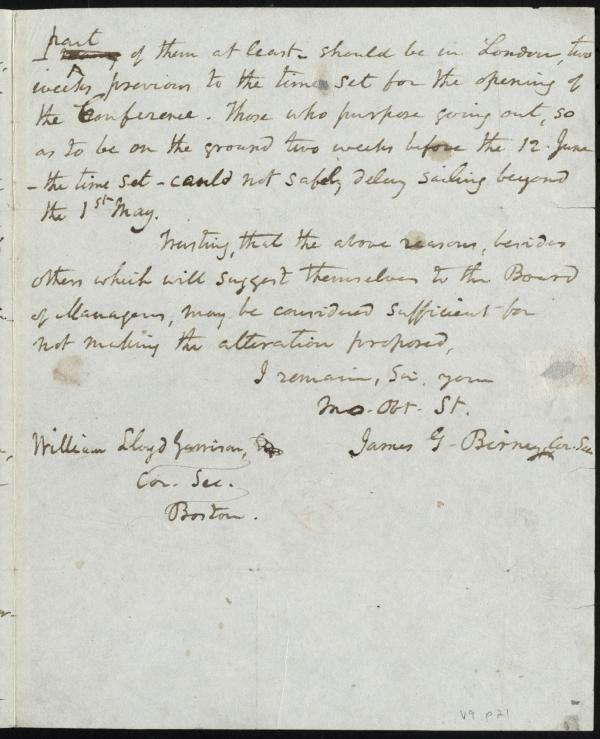 part
of them at least - should be in London, two
weeks previous to the time set for the opening of
the Conference. Those who purpose going out, so
as to be on the ground two weeks before the 12. June
- the time set - could not safely delay sailing beyond
the 1st May.
Trusting, that the above reasons, besides
others which will suggest themselves to the Board
of Managers, may be considered sufficient for
not making the alteration proposed,
I remain, Sir, your
Mo. Obt. St.
James G. Birney, Cor. Sec
William Lloyd Garrison,
Cor. Sec.
Boston.
V9 p21